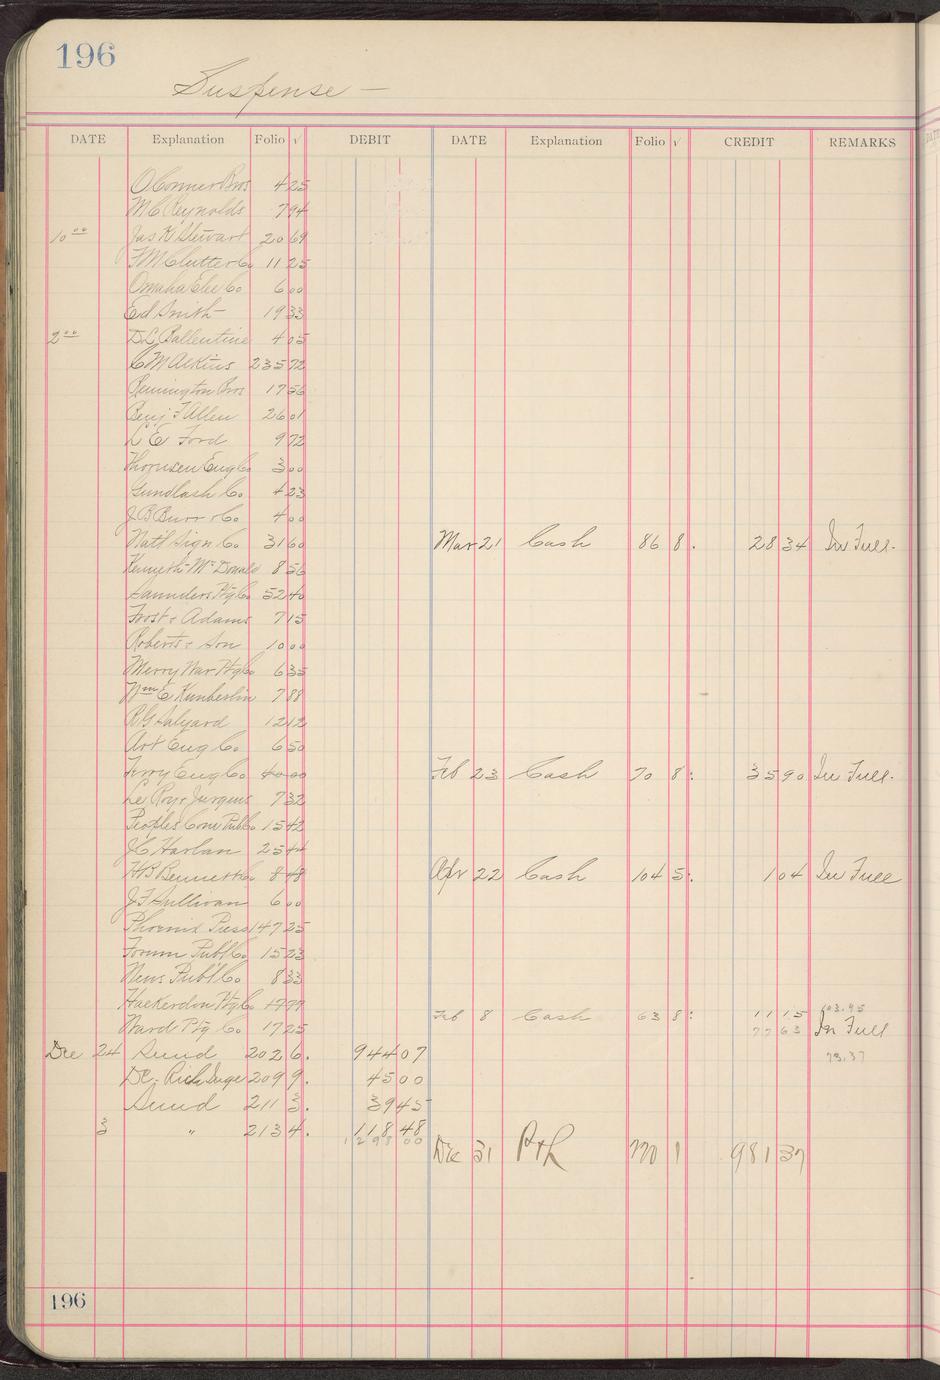 196
Suspense —
DATE Explanation Folio √ DEBIT DATE Explanation Folio √ CREDIT REMARKS
O'Conner Bros 4 25
M C Reynolds 7 94
10 00 Jas K Stewart 20 69
F M Clutter Co 11 25
Omaha Elec Co 6 00
Ed Smith 19 33
2 00 D L Ballentine 4 05
C M Alkins 235 72
Remington Bros 17 56
Benj F Allen 26 01
L E Ford 9 72
Thomsen Eng Co 3 00
Gundlash Co 4 23
J B Burr & Co 4 00
Nat'l Sign Co 31 60 Mar 21 Cash 86 8. 28 34 In Full.
Kenneth McDonald 8 56
Saunders Ptg Co 52 40
Frost & Adams 7 15
Roberts & Son 10 00
Merry War Ptg Co 6 35
Wm E Kimberlin 7 88
R G Salyard 12 12
Art Eng Co 6 50
Terry Eng Co 40 00 Feb 23 Cash 70 8: 35 90 In Full.
Le Roy & Jurgens 7 32
Peoples Com Publ Co 15 42
J C Harlan 25 44
H B Bennett Co 8 48 Apr 22 Cash 104 5: 1 04 In Full
J F Sullivan 6 00
Phoenix Press 147 25
Forum Publ Co 15 23
News Publ Co 8 33
Hackerdon Ptg Co 17 77 603.95
Feb 8 Cash 63 8: 11 15
Ward Ptg Co 17 25 77 63 In Full
Dec 24 Sund 202 6. 944 07 73.37
209 9. 45 00
Sund 211 3. 39 45
3 " 213 4. 118 48
1298 00
Dec 31 P & L 270 1 981 37
196